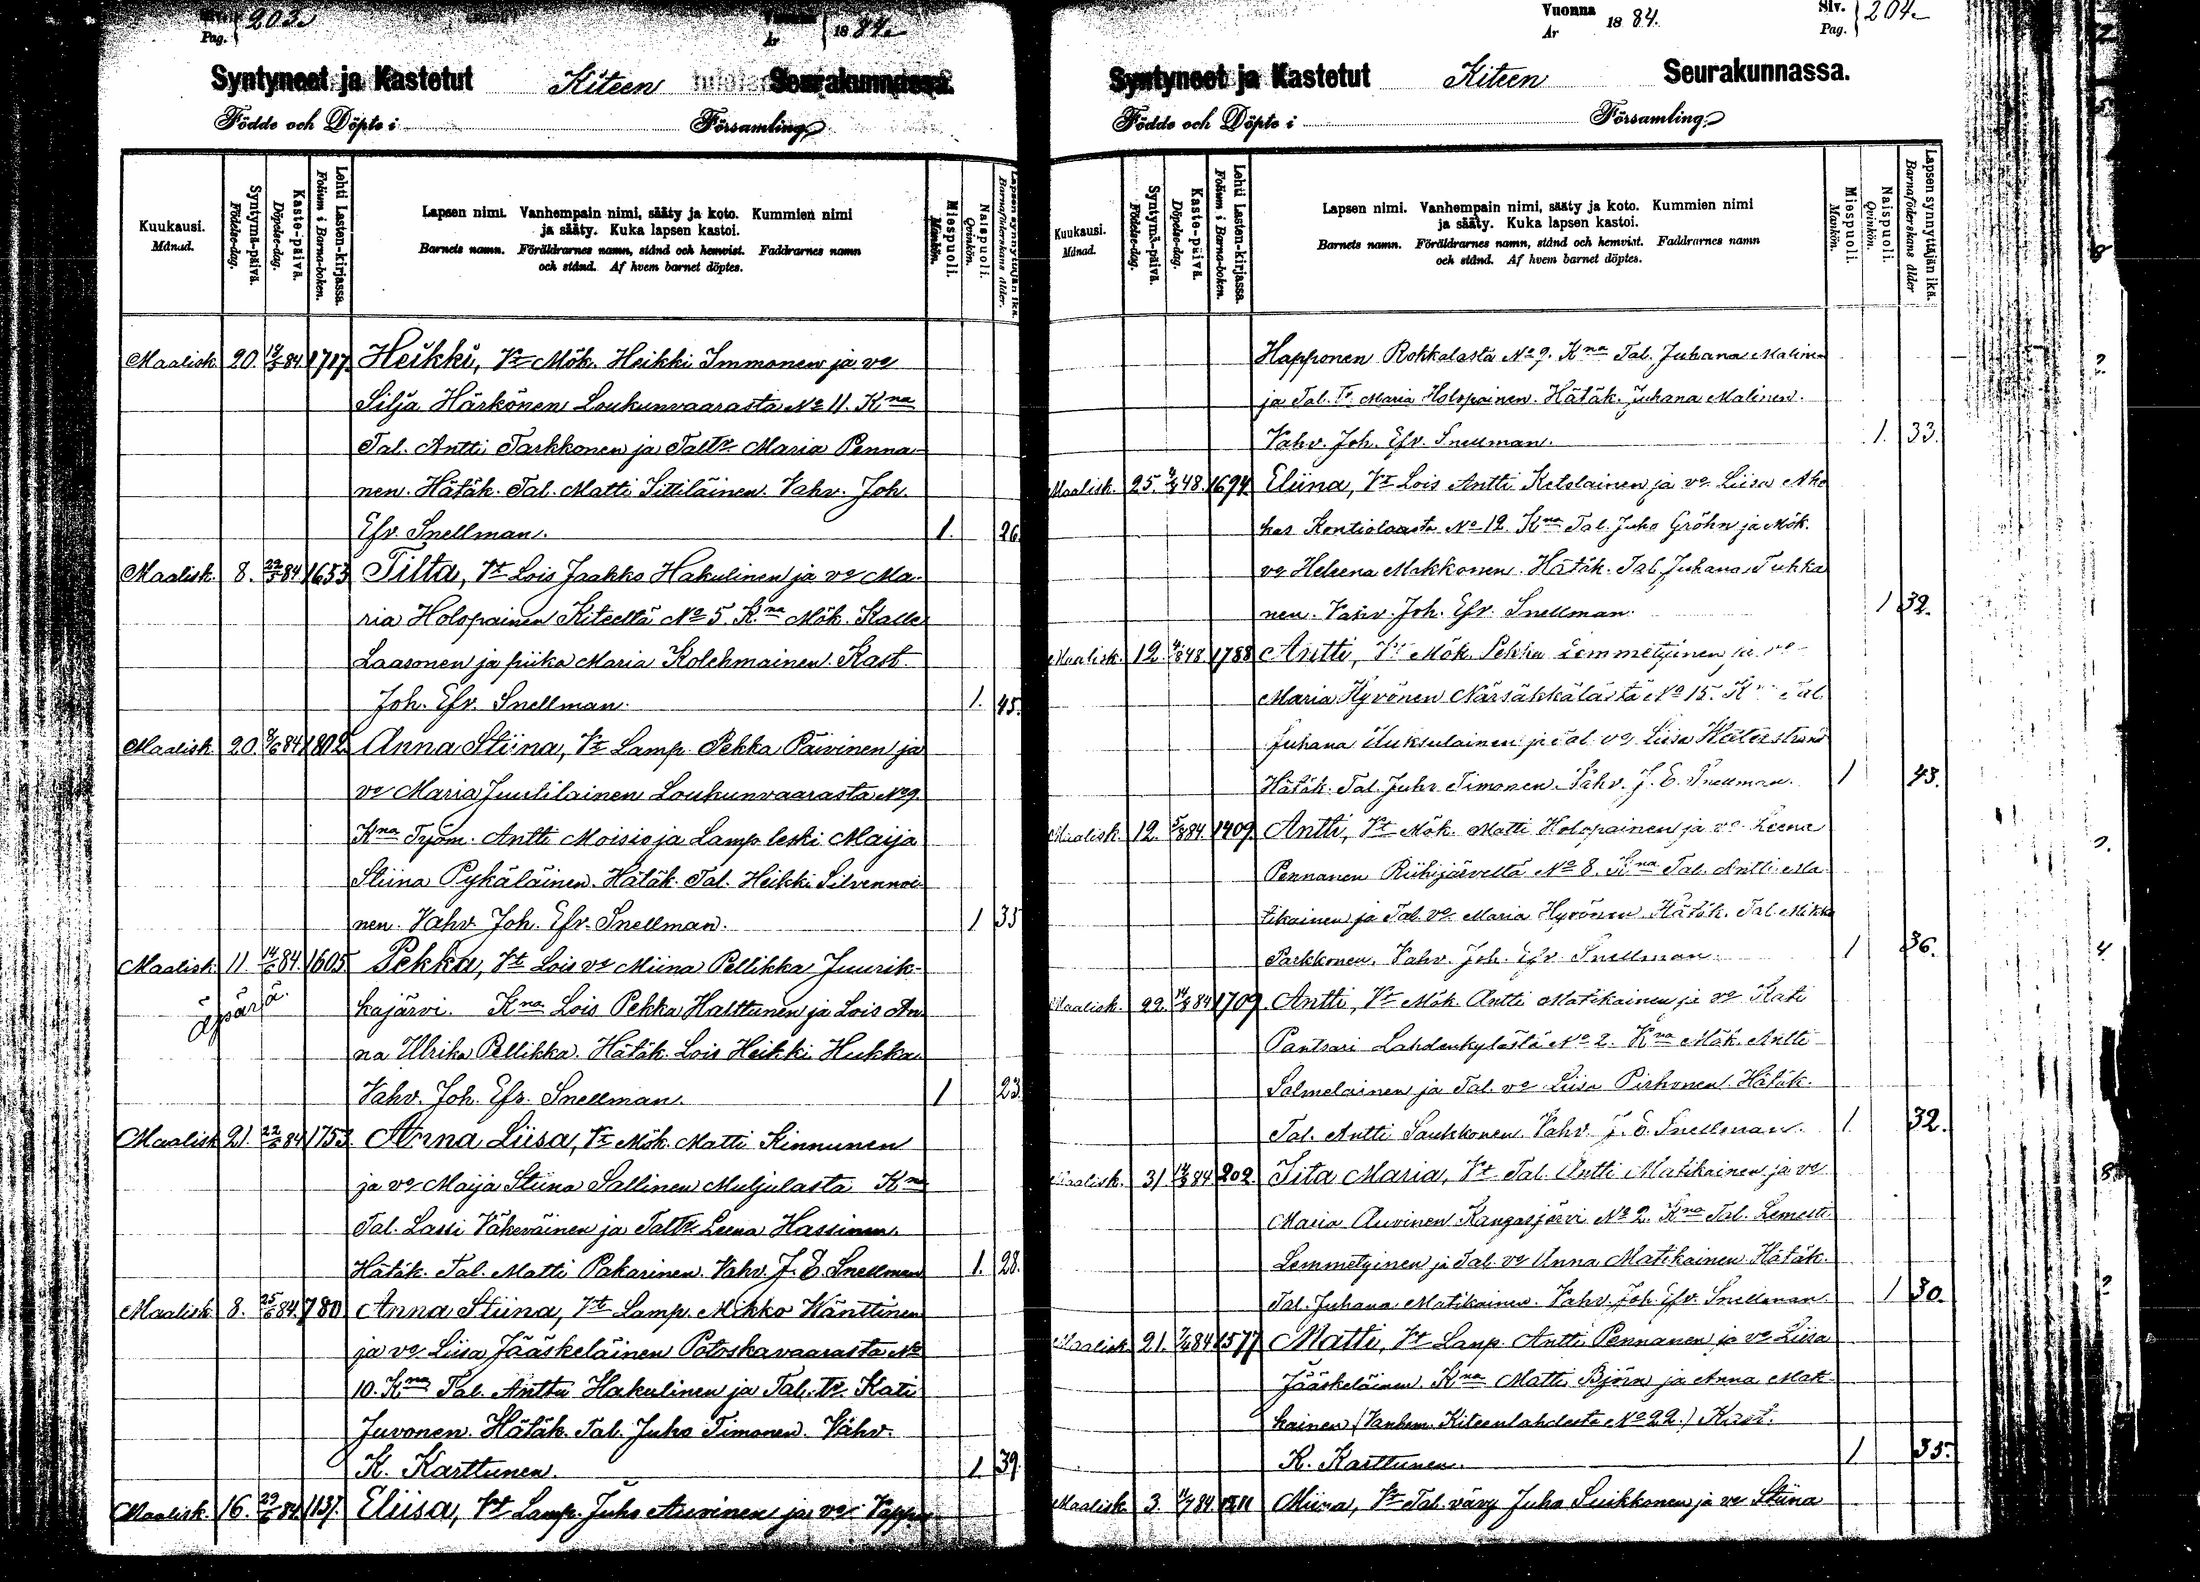 Pag. 203.
År 1884.
Syntyneet ja Kastetut Kiteen Seurakunnassa.
Födde och Döpte i Församling.
Kuukausi. Månad.
Syntymä-päivä. Födelse-dag.
Kaste-päivä. Döpelse-dag.
Lehti Lasten-kirjassa. Folium i Barna-boken.
Lapsen nimi. Vanhempain nimi, sääty ja koto. Kummien nimi
ja sääty. Kuka lapsen kastoi.
Barnets namn. Föräldrarnes namn, stånd och hemvist. Faddrarnes namn
och stånd. Af hvem barnet döptes.
Miespuoli. Mankön.
Naispuoli. Qvinkön.
Lapsen synnyttäjän ikä. Barnaföderskans ålder.
Maalisk. 20. 84 1717. Heikki, Vt Mök. Heikki Immonen ja vo
Silja Härkönen Loukunvaarasta No 11. Kna
Tal. Antti Tarkkonen ja Tal tr Maria Penna-
nen. Hätäk. Tal. Matti Sittiläinen. Vahv. Joh.
Efr. Snellman. 1. 26.
Maalisk. 8. 84 1653 Tilta, Vt Lois Jaakko Hakulinen ja vo Ma-
ria Holopainen Kiteeltä No 5. Kna Mök. Kalle
Laasonen ja piika Maria Kolehmainen. Kast.
Joh. Efr. Snellman. 1. 45.
Maalisk. 20. 84 1802. Anna Stiina, Vt Lamp. Pekka Päivinen ja
vo Maria Juutilainen Loukunvaarasta No 9.
Kna Työm. Antti Moisio ja Lamp. leski Maija
Stiina Pykäläinen. Hätäk. Tal. Heikki Silvennoi-
nen. Vahv. Joh. Efr. Snellman. 1 35
Maalisk. 11 14/6 84. 1605 Pekka, Vt Lois vo Miina Pellikka Juurik-
Äpärä. kajärvi. Kna Lois Pekka Halttunen ja Lois An-
na Ulrika Pellikka. Hätäk. Lois Heikki Hukka.
Vahv. Joh. Efr. Snellman. 1 23.
Maalisk 21. 84 1753. Anna Liisa, Vt Mök. Matti Kinnunen
ja vo Maija Stiina Sallinen Muljulasta Kna
Tal. Lassi Väkeväinen ja Tal tr Leena Hassinen.
Hätäk. Tal. Matti Pakarinen. Vahv. J. E. Snellman 1. 28.
Maalisk 8. 25/6 84. 780 Anna Stiina, Vt Lamp. Mikko Känttinen
ja vo Liisa Jääskeläinen Potoskavaarasta No
10. Kna Tal. Anttu Hakulinen ja Tal. tr. Kati
Juvonen. Hätäk. Tal. Juho Timonen. Vahv.
K. Karttunen. 1 39.
Maalisk. 16. 84. 1137. Eliisa, Vt Lamp. Juho Auvinen ja vo Vappu
Vuonna År 1884.
Siv. Pag. 204.
Syntyneet ja Kastetut Kiteen Seurakunnassa.
Födde och Döpte i Församling.
Kuukausi. Månad.
Syntymä-päivä. Födelse-dag.
Kaste-päivä. Döpelse-dag.
Lehti Lasten-kirjassa. Folium i Barna-boken.
Lapsen nimi. Vanhempain nimi, sääty ja koto. Kummien nimi
ja sääty. Kuka lapsen kastoi.
Barnets namn. Föräldrarnes namn, stånd och hemvist. Faddrarnes namn
och stånd. Af hvem barnet döptes.
Miespuoli. Mankön.
Naispuoli. Qvinkön.
Lapsen synnyttäjän ikä. Barnaföderskans ålder
Happonen Rokkalasta No 9. Kna Tal. Juhana Malinen
ja Tal. tr Maria Holopainen. Hätäk. Juhana Malinen.
Vahv. Joh. Efr. Snellman. 1. 33.
Maalisk. 25. 1694. Eliina, Vt Lois Antti Ketolainen ja vo Liisa Aho
kas Kontiolaasta No 12. Kna Tal. Juho Gröhn ja Mök.
vo Helena Makkonen. Hätäk. Tal. Juhana Tukka
nen. Vahv. Joh. Efr. Snellman. 1 32.
Maalisk 12. 1788 Antti, Vt Mök. Pekka Lemmetyinen ja vo
Maria Hyvönen Närsäkkälästä No 15. Kna Tal.
Juhana Uuksulainen ja Tal. vo Liisa
Hätäk. Tal. Juho Timonen. Vahv. J. E. Snellman. 1 43.
Maalisk. 12. 84 1409. Antti, Vt Mök. Matti Holopainen ja vo Leena
Pennanen Riihijärveltä No 8. Kna Tal. Antti Ma-
tikainen ja Tal. vo Maria Hyvönen. Hätäk. Tal. Mikko
Parkkonen. Vahv. Joh. Efr. Snellman. 1 36.
Maalisk. 22. 84 1709. Antti, Vt Mök. Antti Matikainen ja vo Kati
Pantsari Lahdenkylästä No 2. Kna Mök. Antti
Salmelainen ja Tal. vo Liisa Pirhonen. Hätäk.
Tal. Antti Saukkonen. Vahv. J. E. Snellman. 1. 32.
Maalisk. 31 84 202. Tita Maria, Vt Tal. Antti Matikainen ja vo
Maria Auvinen Kangasjärvi No 2. Kna Tal. Lemetti
Lemmetyinen ja Tal. vo Anna Matikainen. Hätäk.
Tal. Juhana Matikainen. Vahv. Joh. Efr. Snellman. 1 30.
Maalisk. 21. 84 1577 Matti, Vt Lamp. Antti Pennanen ja vo Liisa
Jääskeläinen. Kna Matti Björn ja Anna Mak-
kainen (Vanhem. Kiteenlahdesta No 22.) Kast.
K. Karttunen. 1 35.
Maalisk. 3. 84. Miina, Vt Tal. vävy Juho Suikkonen ja vo Stiina